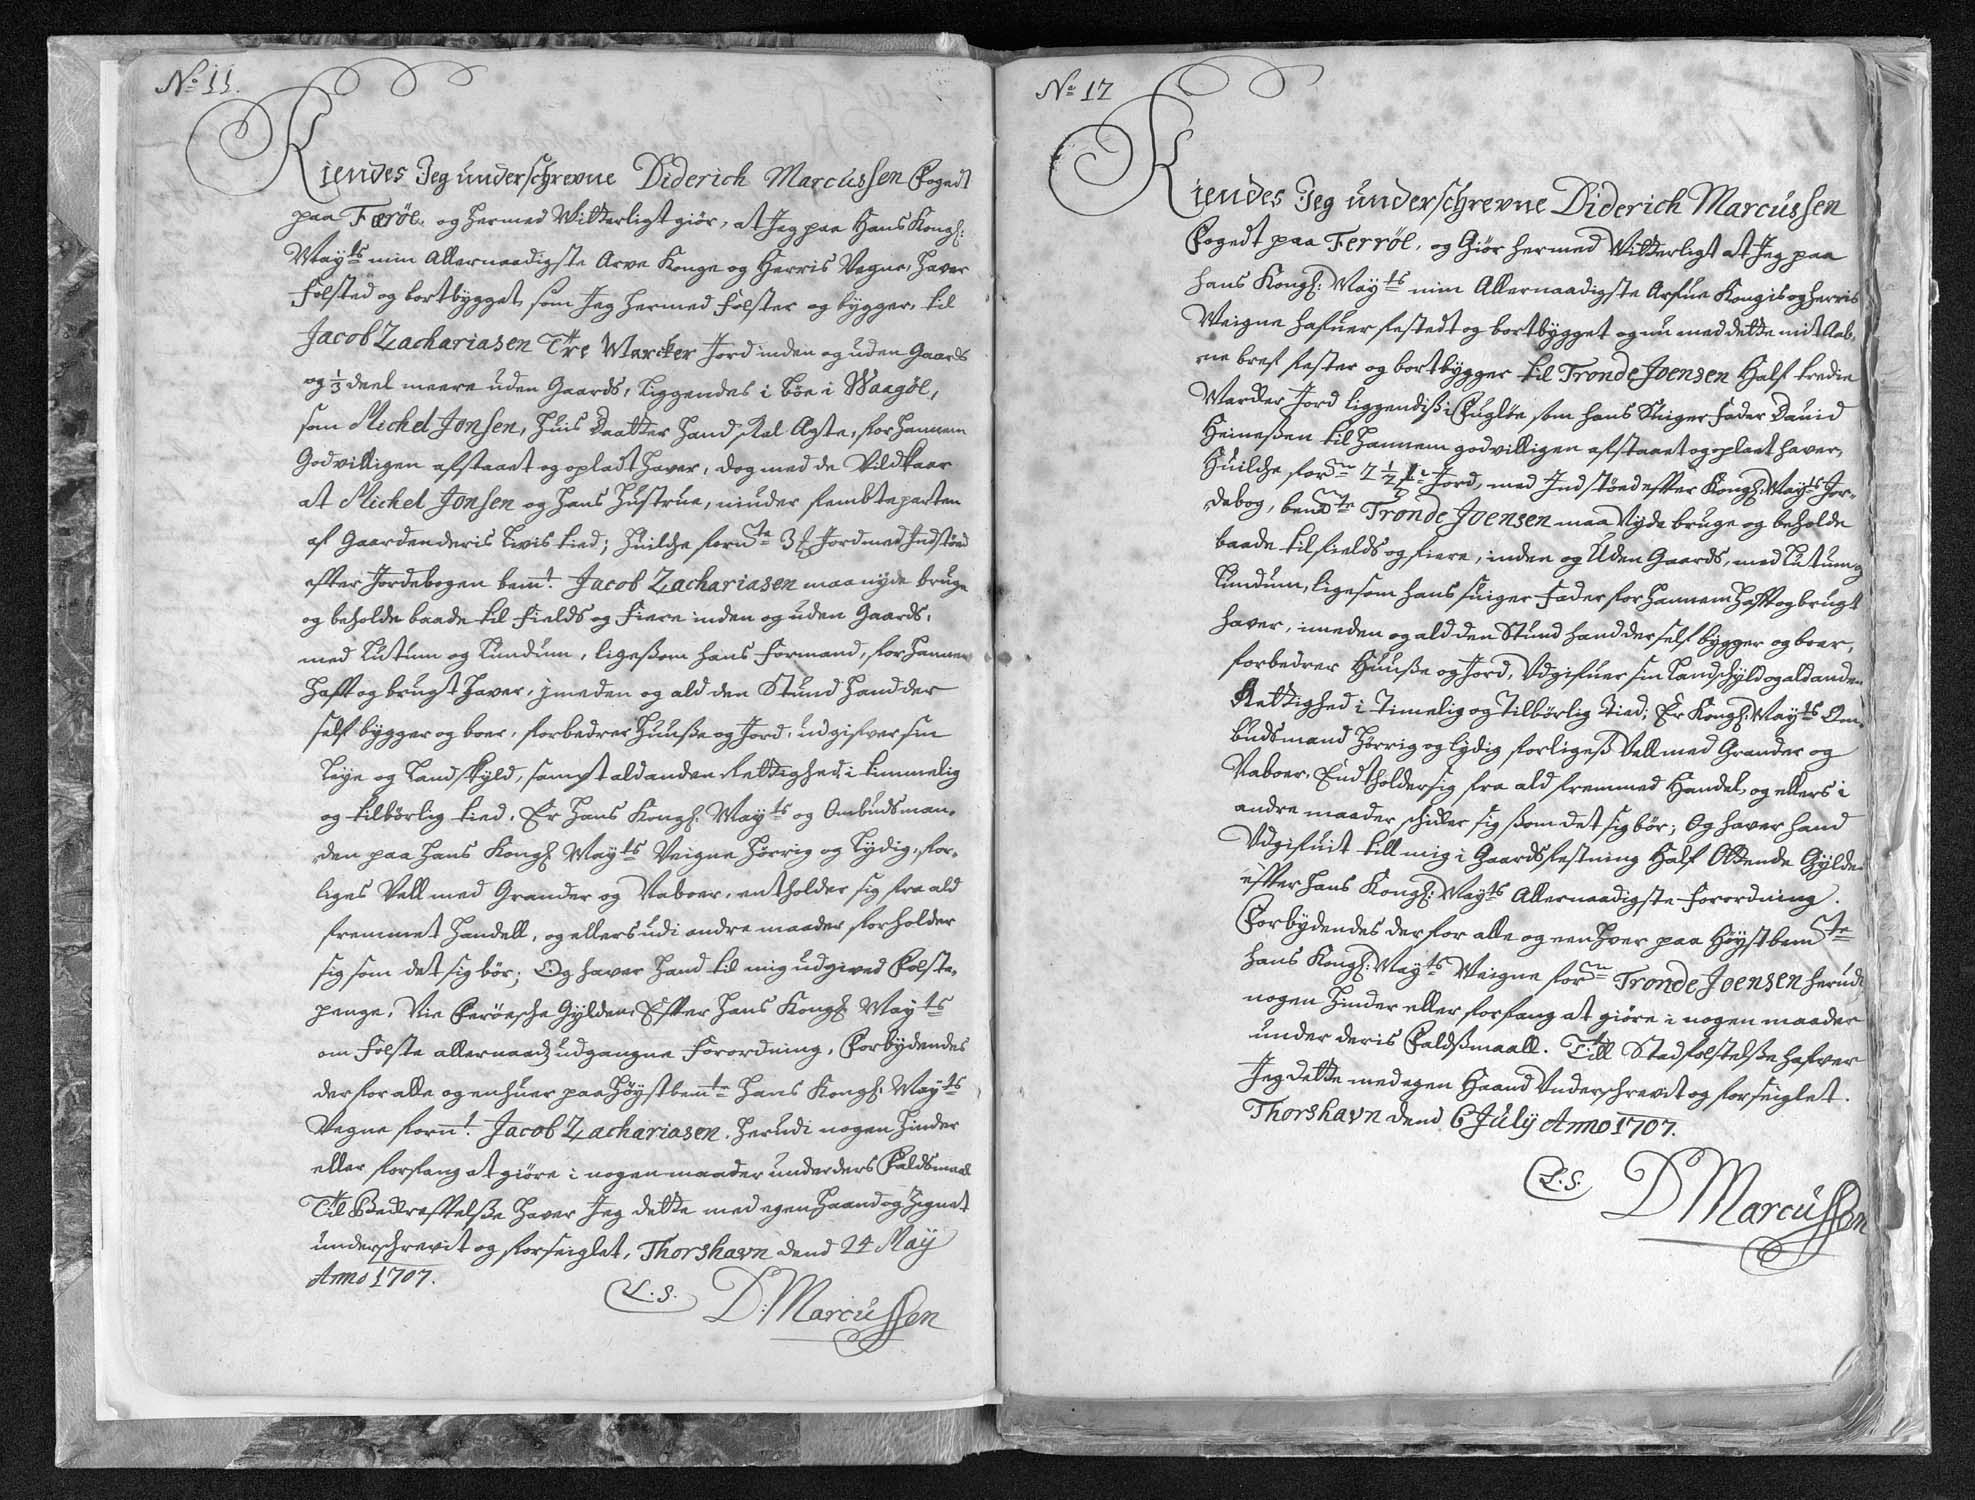 No 11.
Kiendes Jeg underschrevne Diderich Marcussen Fogedt
paa Færöe, og hermed Witterligt giör, at Jeg paa Hans Kongl:
Mayts min Allernaadigste Arve Konge og Herris Vegne, haver
Fölsted og bortbygget, som Jeg hermed Fölster og bygger, til
Jacob Zachariasen Tre Marcker Jord inden og uden Gaards
og 1/3 deel meere uden Gaards, Liggendes i Böe i Waagöe,
som Michel Jonsen, huis Daatter hand skal Ægte, for hannem
Godvilligen afstaaet og opladt haver, dog med de Vildkaar
at Michel Jonsen og hans Hustrue, niuder fembteparten
af Gaarden deris Livis tied; huilche fornte 3 Jord med Indstöed
efter Jordebogen bemt. Jacob Zachariasen maa nyde bruge
og beholde baade til Fields og Fiere inden og uden Gaards,
med Lutum og Lundum, ligesom hans Formand, for hannem
haft og brugt haver, imeden og ald den Stund hand der
self bygger og boer, forbedrer Huuse og Jord, udgifver sin
Leye og Landskyld, sampt ald anden Rettighed i timmelig
og tilbörlig tied, Er hans Kongl. Mayts og Ombudsman-
den paa hans Kongl Mayts Veigne hörrig og Lydig, for-
liges Vell med Grander og Naboer, entholder sig fra ald
fremmet Handell, og ellers udi andre maader forholder
sig som det sig bör; Og haver hand til mig udgived Fölste-
penge, Nie Færöesche Gylden Efter Hans Kongl Mayts
om Fölste allernaad udgangne Forordning, Forbydendes
der for alle og enhuer paa Höystbemte Hans Kongl. Mayts
Vegne fornt. Jacob Zachariasen, herudi nogen Hinder
eller forfang at giöre i nogen maader under ders Faldsmaal
Til Bekreftelse haver Jeg dette med egen Haand og Zignet
underschrevit og forseiglet, Thorshavn dend 24 May
Anno 1707.
L.S. D: Marcussen
No 12
Kiendes Jeg underschrevne Diderich Marcussen
Fogedt paa Ferröe, og Giör hermed Witterligt at Jeg paa
hans Kongl: Mayts min Allernaadigste Arfue Kongis og Herris
Veigne hafuer festedt og bortbygget og nu med dette mit Aab-
ne bref fester og bortbygger til Tronde Joensen Half tredie
Marcker Jord liggendis i Fuglöe som hans Suiger Fader Dauid
Heinesen til hannem godvilligen afstaaet og oplaet haver,
Huilche forne 2 1/2 Jord, med Indstöed effter Kongl: Mayts Jor-
debog, bemte Tronde Joensen maa Nyde bruge og beholde
baade til fields og fiere, inden og Uden Gaards, med Lutum og
Lundum, ligesom hans suiger Fader for hannem hafft og brugt
haver, imeden og ald den Stund hand der self bygger og boer,
forbedrer Huuse og Jord, Udgifuer sin Landschyld og ald anden
Rettighed i Timelig og Tilbörlig tied; Er Kongl: Mayts Om-
budsmand hörrig og lydig forliges Vell med Grander og
Naboer, Endtholder sig fra ald fremmed Handel, og ellers i
andre maader schicker sig som det sig bör; Og haver hand
Udgifuit till mig i Gaards festning Half Ottende Gylden
efter hans Kongl: Mayts Allernaadigste Forordning.
Forbydendes der for alle og een hver paa Höystbemte
hans Kongl: Mayts Veigne forne Tronde Joensen herudi
nogen hinder eller forfang at giöre i nogen maader
under deris Faldsmaall. Till Stadfestelse hafver
Jeg dette med egen Haand Underschrevit og forseiglet.
Thorshavn dend 6 July Anno 1707.
L.S. D Marcussen